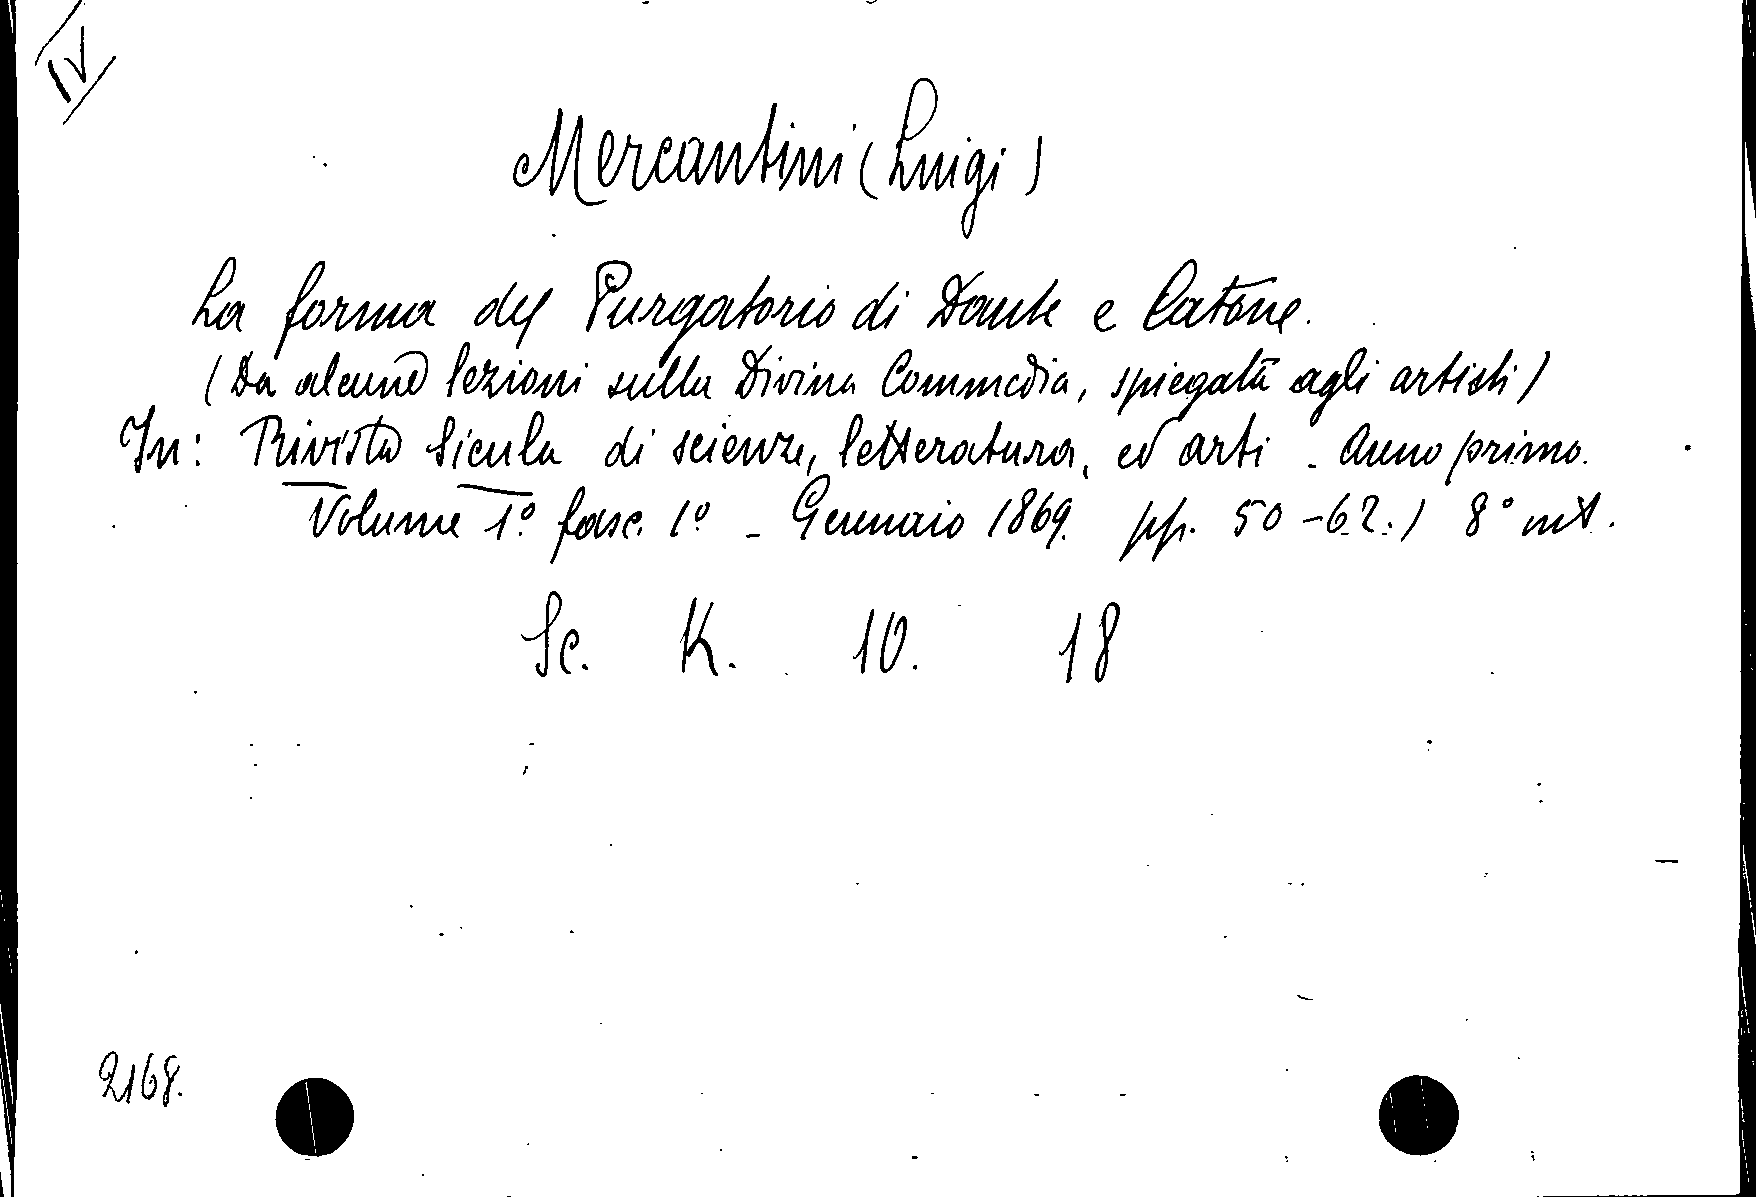 IV
Mercantini (Luigi)
La forma del Purgatorio di Dante e Catone.
(Da alcune lezioni sulla Divina Commedia, spiegata agli artisti)
In: Rivista Sicula di scienze, letteratura, ed arti - Anno primo.
Volume 1º fasc. 1º - Gennaio 1869. pp. 50-62.) 8º
Sc. K. 10. 18
2168.